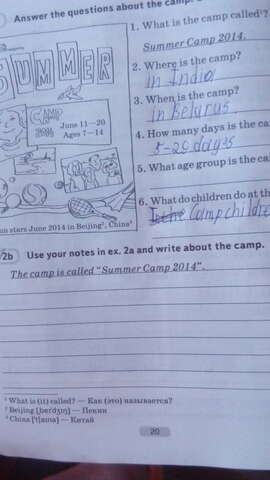 Answer the questions about the camp.
1. What is the camp called¹?
Summer Camp 2014.
2. Where is the camp?
in India
3. When is the camp?
in Belarus
4. How many days is the ca
5-20 days
5. What age group is the ca
6. What do children do at th
Camp childre
SUMMER
CAMP
2014
June 11—20
Ages 7—14
un stars June 2014 in Beijing², China³
2b Use your notes in ex. 2a and write about the camp.
The camp is called “Summer Camp 2014”.
¹ What is (it) called? — Как (это) называется?
² Beijing [ˌbeɪˈdʒɪŋ] — Пекин
³ China [ˈtʃaɪnə] — Китай
20